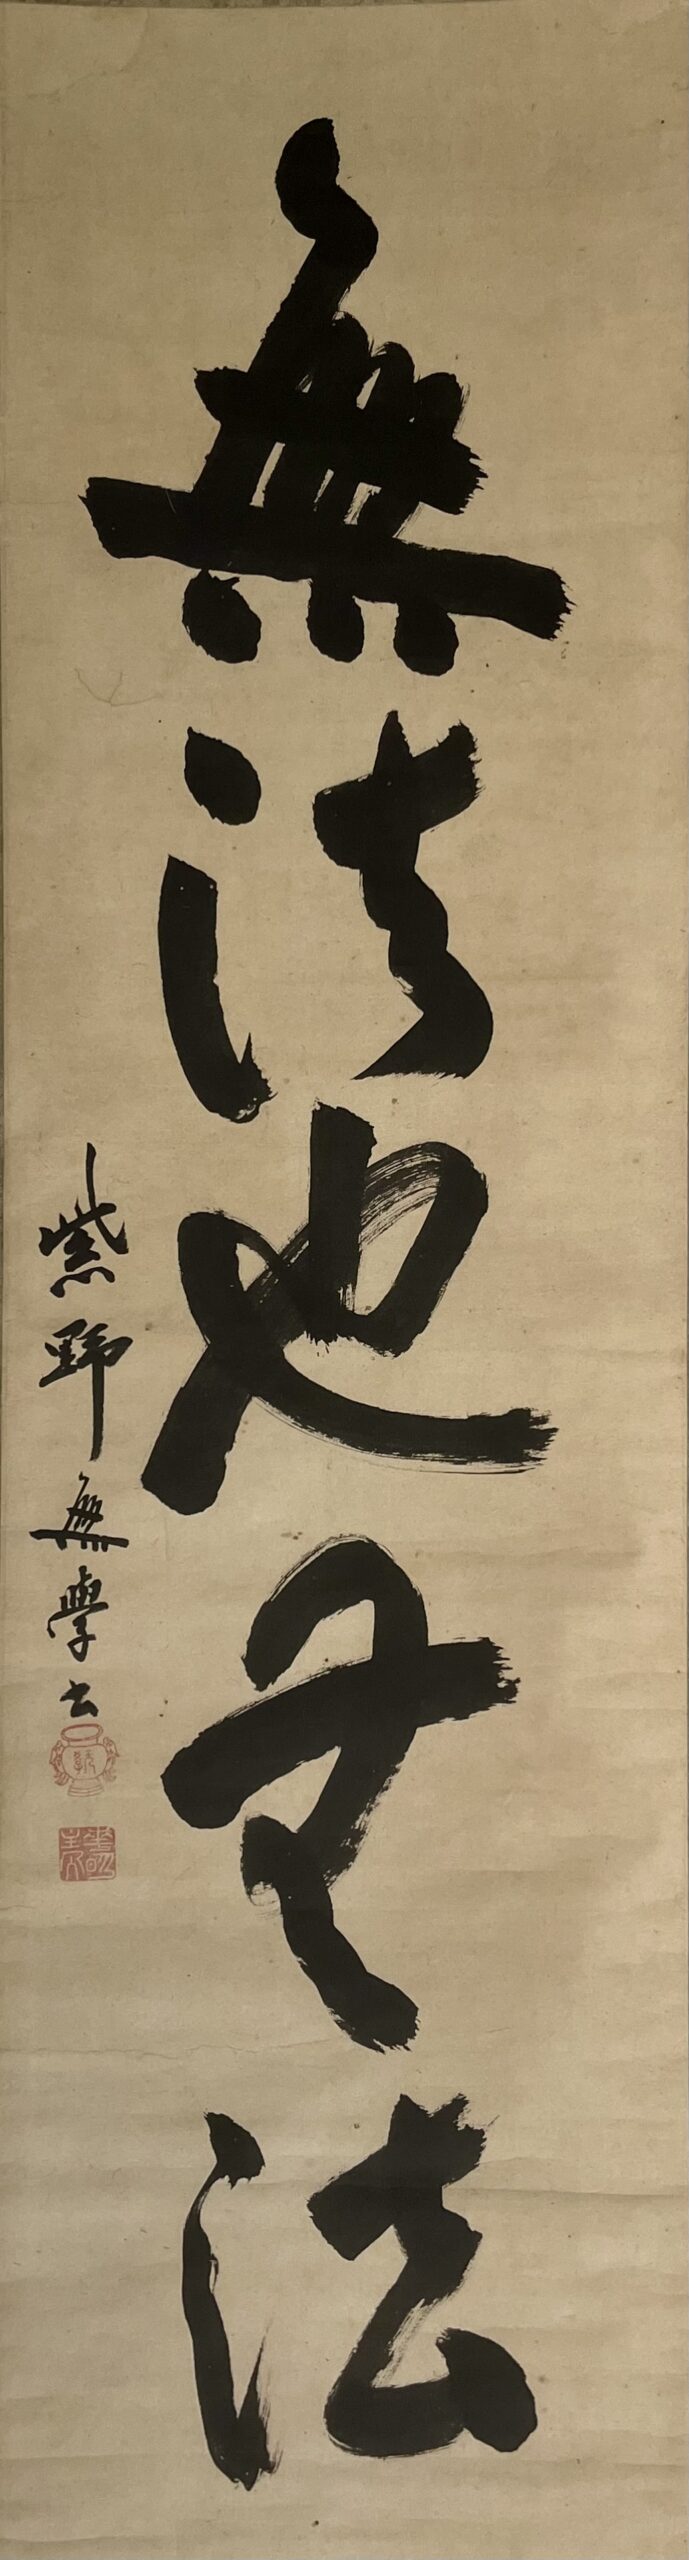 無法也無法
紫野無學書